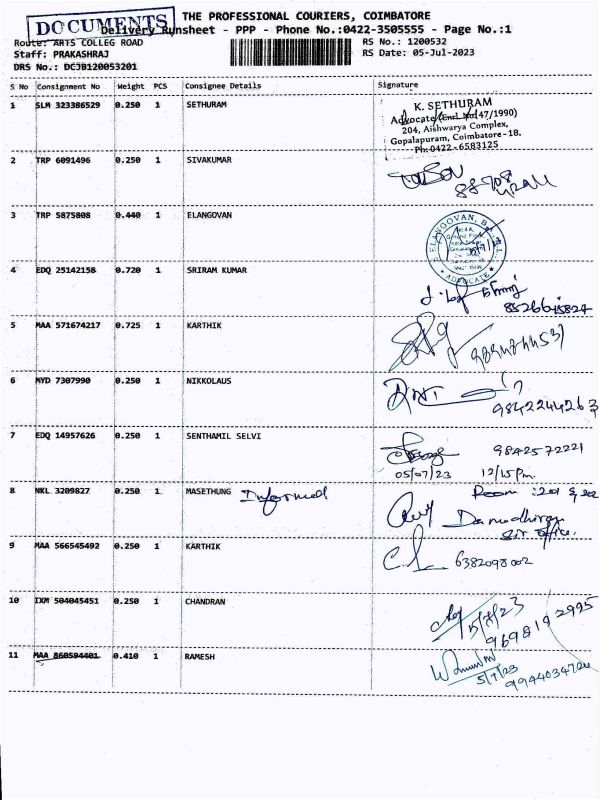 DOCUMENTS
THE PROFESSIONAL COURIERS, COIMBATORE
Delivery Runsheet - PPP - Phone No.:0422-3505555 - Page No.:1
Route: ARTS COLLEG ROAD RS No.: 1200532
Staff: PRAKASHRAJ RS Date: 05-Jul-2023
DRS No.: DCJB120053201
S No Consignment No Weight PCS Consignee Details Signature
1 SLM 323386529 0.250 1 SETHURAM
K. SETHURAM
Advocate (Enrl. No. 47/1990)
204, Aishwarya Complex,
Gopalapuram, Coimbatore - 18.
Ph: 0422 - 6583125
2 TRP 6091496 0.250 1 SIVAKUMAR
3 TRP 5875808 0.440 1 ELANGOVAN
ELANGOVAN, B.
ADVOCATE
4 EDQ 25142158 0.720 1 SRIRAM KUMAR
5 MAA 571674217 0.725 1 KARTHIK
6 MYD 7307990 0.250 1 NIKKOLAUS
9842244263
7 EDQ 14957626 0.250 1 SENTHAMIL SELVI
9842572221
05/07/23 12/15 Pm.
8 NKL 3209827 0.250 1 MASETHUNG Informed
Room :201 & 202
Damodhiran
Sir office.
9 MAA 566545492 0.250 1 KARTHIK
6382098002
10 IXM 504045451 0.250 1 CHANDRAN
9698192995
11 MAA 860594401 0.410 1 RAMESH
5/7/23
9994034724